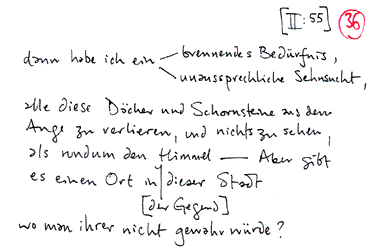 [III:55] 36
dann habe ich ein brennendes Bedürfnis,
unaussprechliche Sehnsucht,
alle diese Dächer und Schornsteine aus dem
Auge zu verlieren, und nichts zu sehen,
als rundum den Himmel — Aber gibt
es einen Ort in dieser Stadt
[der Gegend]
wo man ihrer nicht gewahr würde?